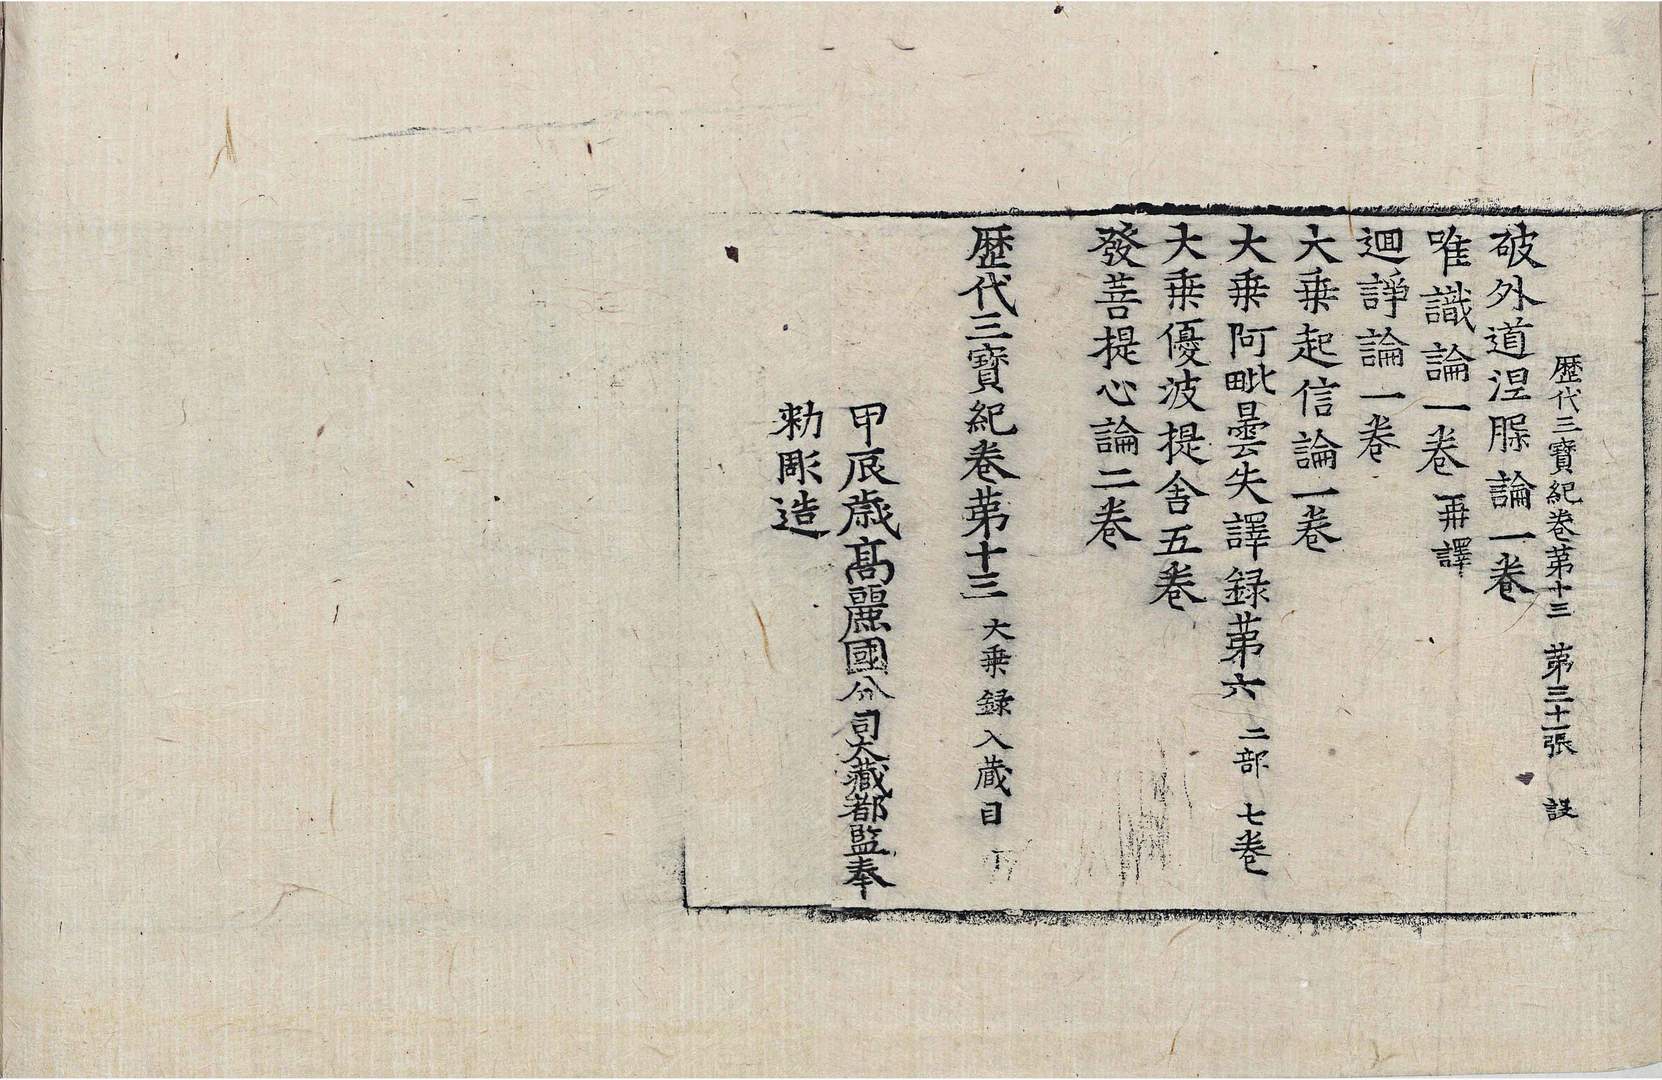 歷代三寶紀卷第十三 第三十一張 設
破外道涅槃論一卷
唯識論一卷 再譯
迴諍論一卷
大乗起信論一卷
大乗阿毗曇失譯録第六 二部 七卷
大乗優波提舍五卷
發菩提心論二卷
歷代三寶紀卷第十三 大乗録入蔵目 丁
甲辰歳高麗國分司大藏都監奉
勑彫造